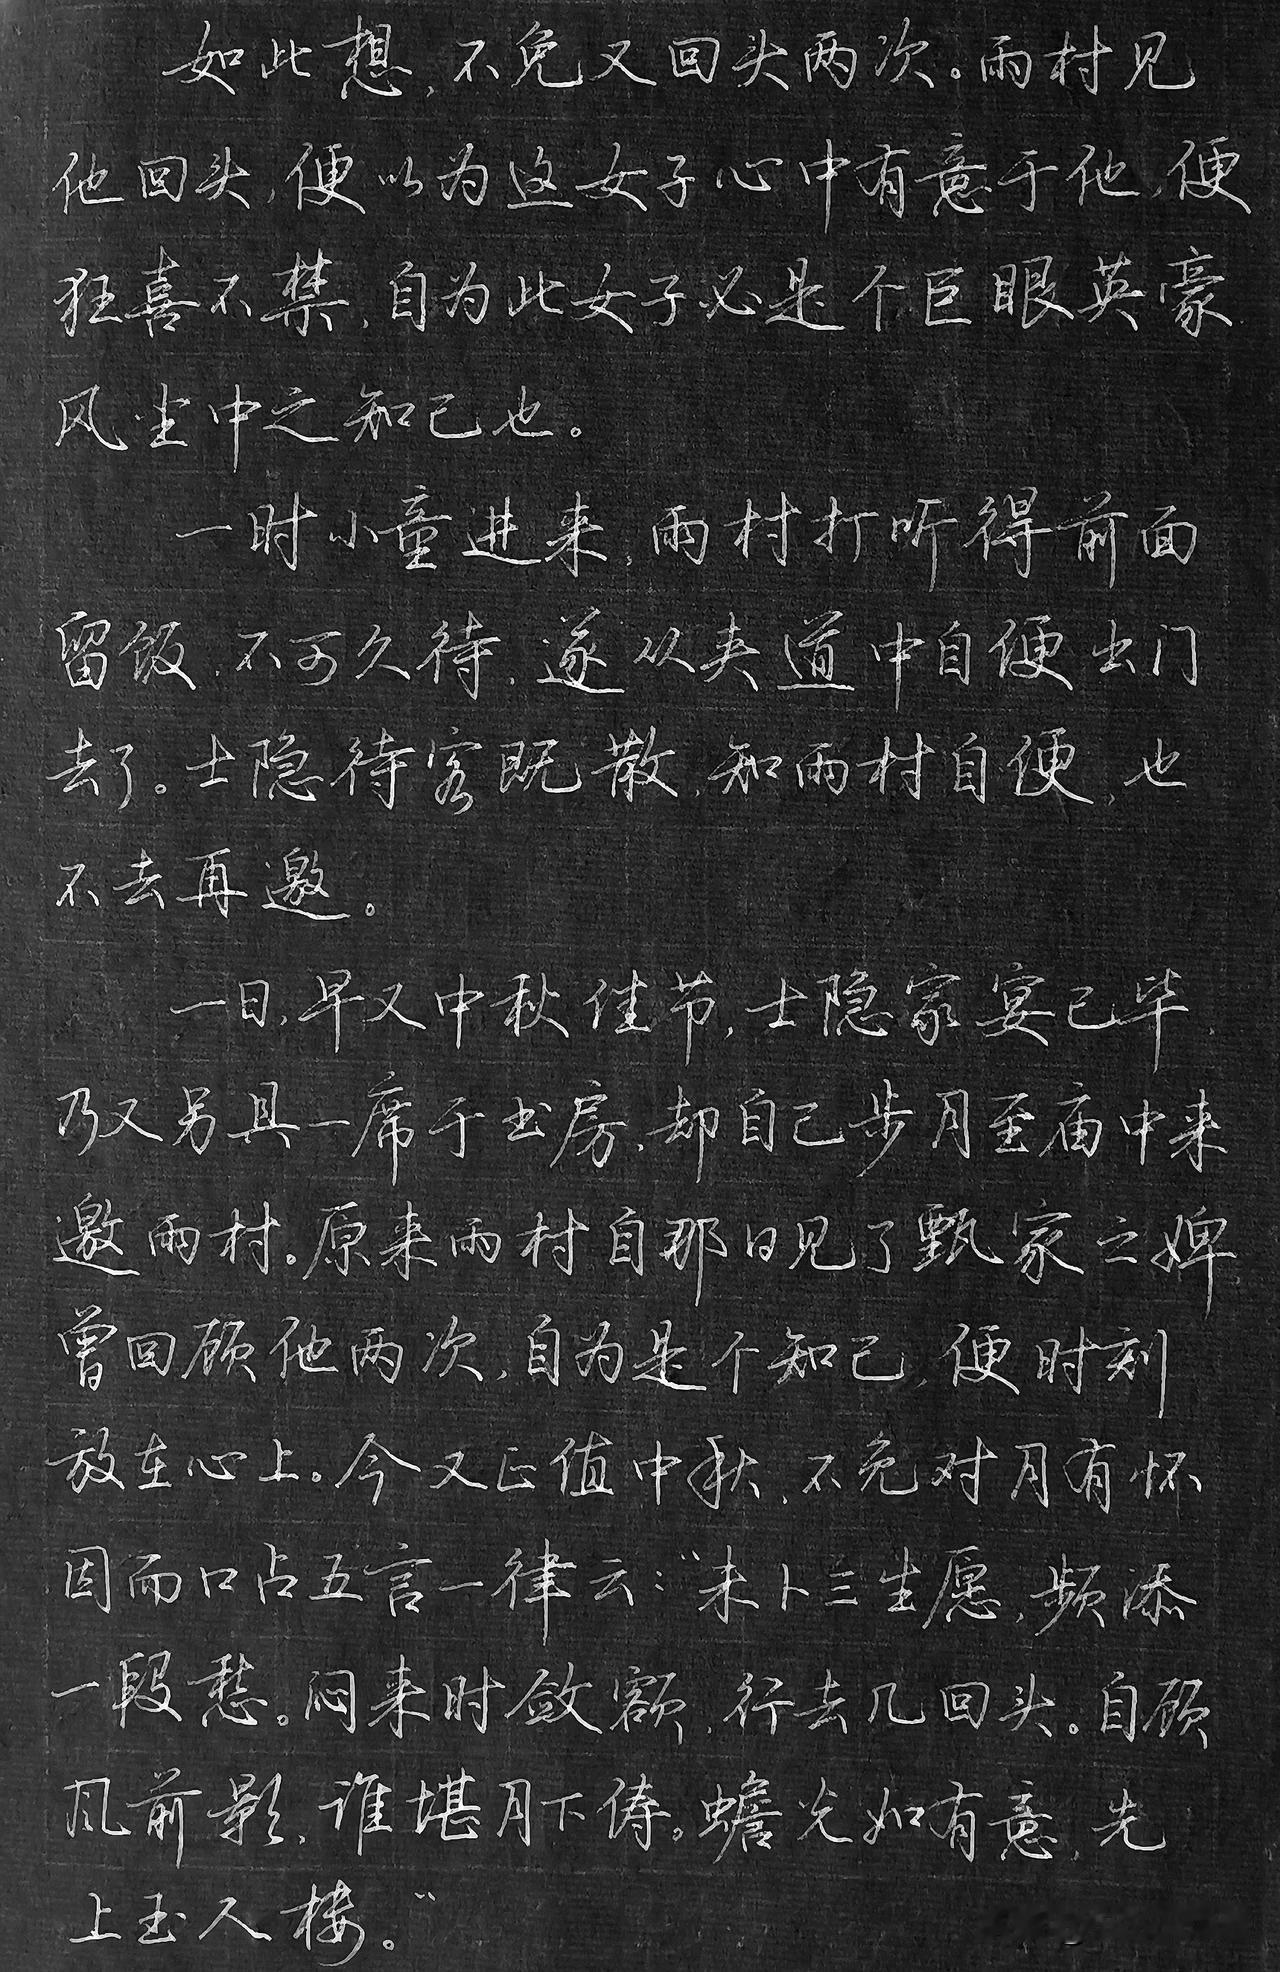 如此想，不免又回头两次。雨村见
他回头，便以为这女子心中有意于他，便
狂喜不禁，自为此女子必是个巨眼英豪
风尘中之知己也。
一时小童进来，雨村打听得前面
留饭，不可久待，遂从夹道中自便出门
去了。士隐待客既散，知雨村自便，也
不去再邀。
一日，早又中秋佳节，士隐家宴已毕，
乃又另具一席于书房，却自己步月至庙中来
邀雨村。原来雨村自那日见了甄家之婢
曾回顾他两次，自为是个知己，便时刻
放在心上。今又正值中秋，不免对月有怀
因而口占五言一律云：“未卜三生愿，频添
一段愁。闷来时敛额，行去几回头。自顾
风前影，谁堪月下俦。蟾光如有意，先
上玉人楼。”